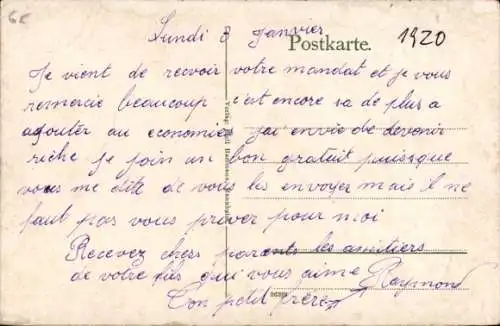 6€
Lundi 8 Janvier
Postkarte.
1920
Je vient de recvoir votre mandat et je vous
remercie beaucoup c'est encore sa de plus a
agouter au economie j'ai envie de devenir
riche Je join un bon gratuit puissque
vous me dite de vous les envoyer mais il ne
faut pas vous priver pour moi
Recevez chers parents les amitiers
de votre fils qui vous aime Raymond
Ton petit frère